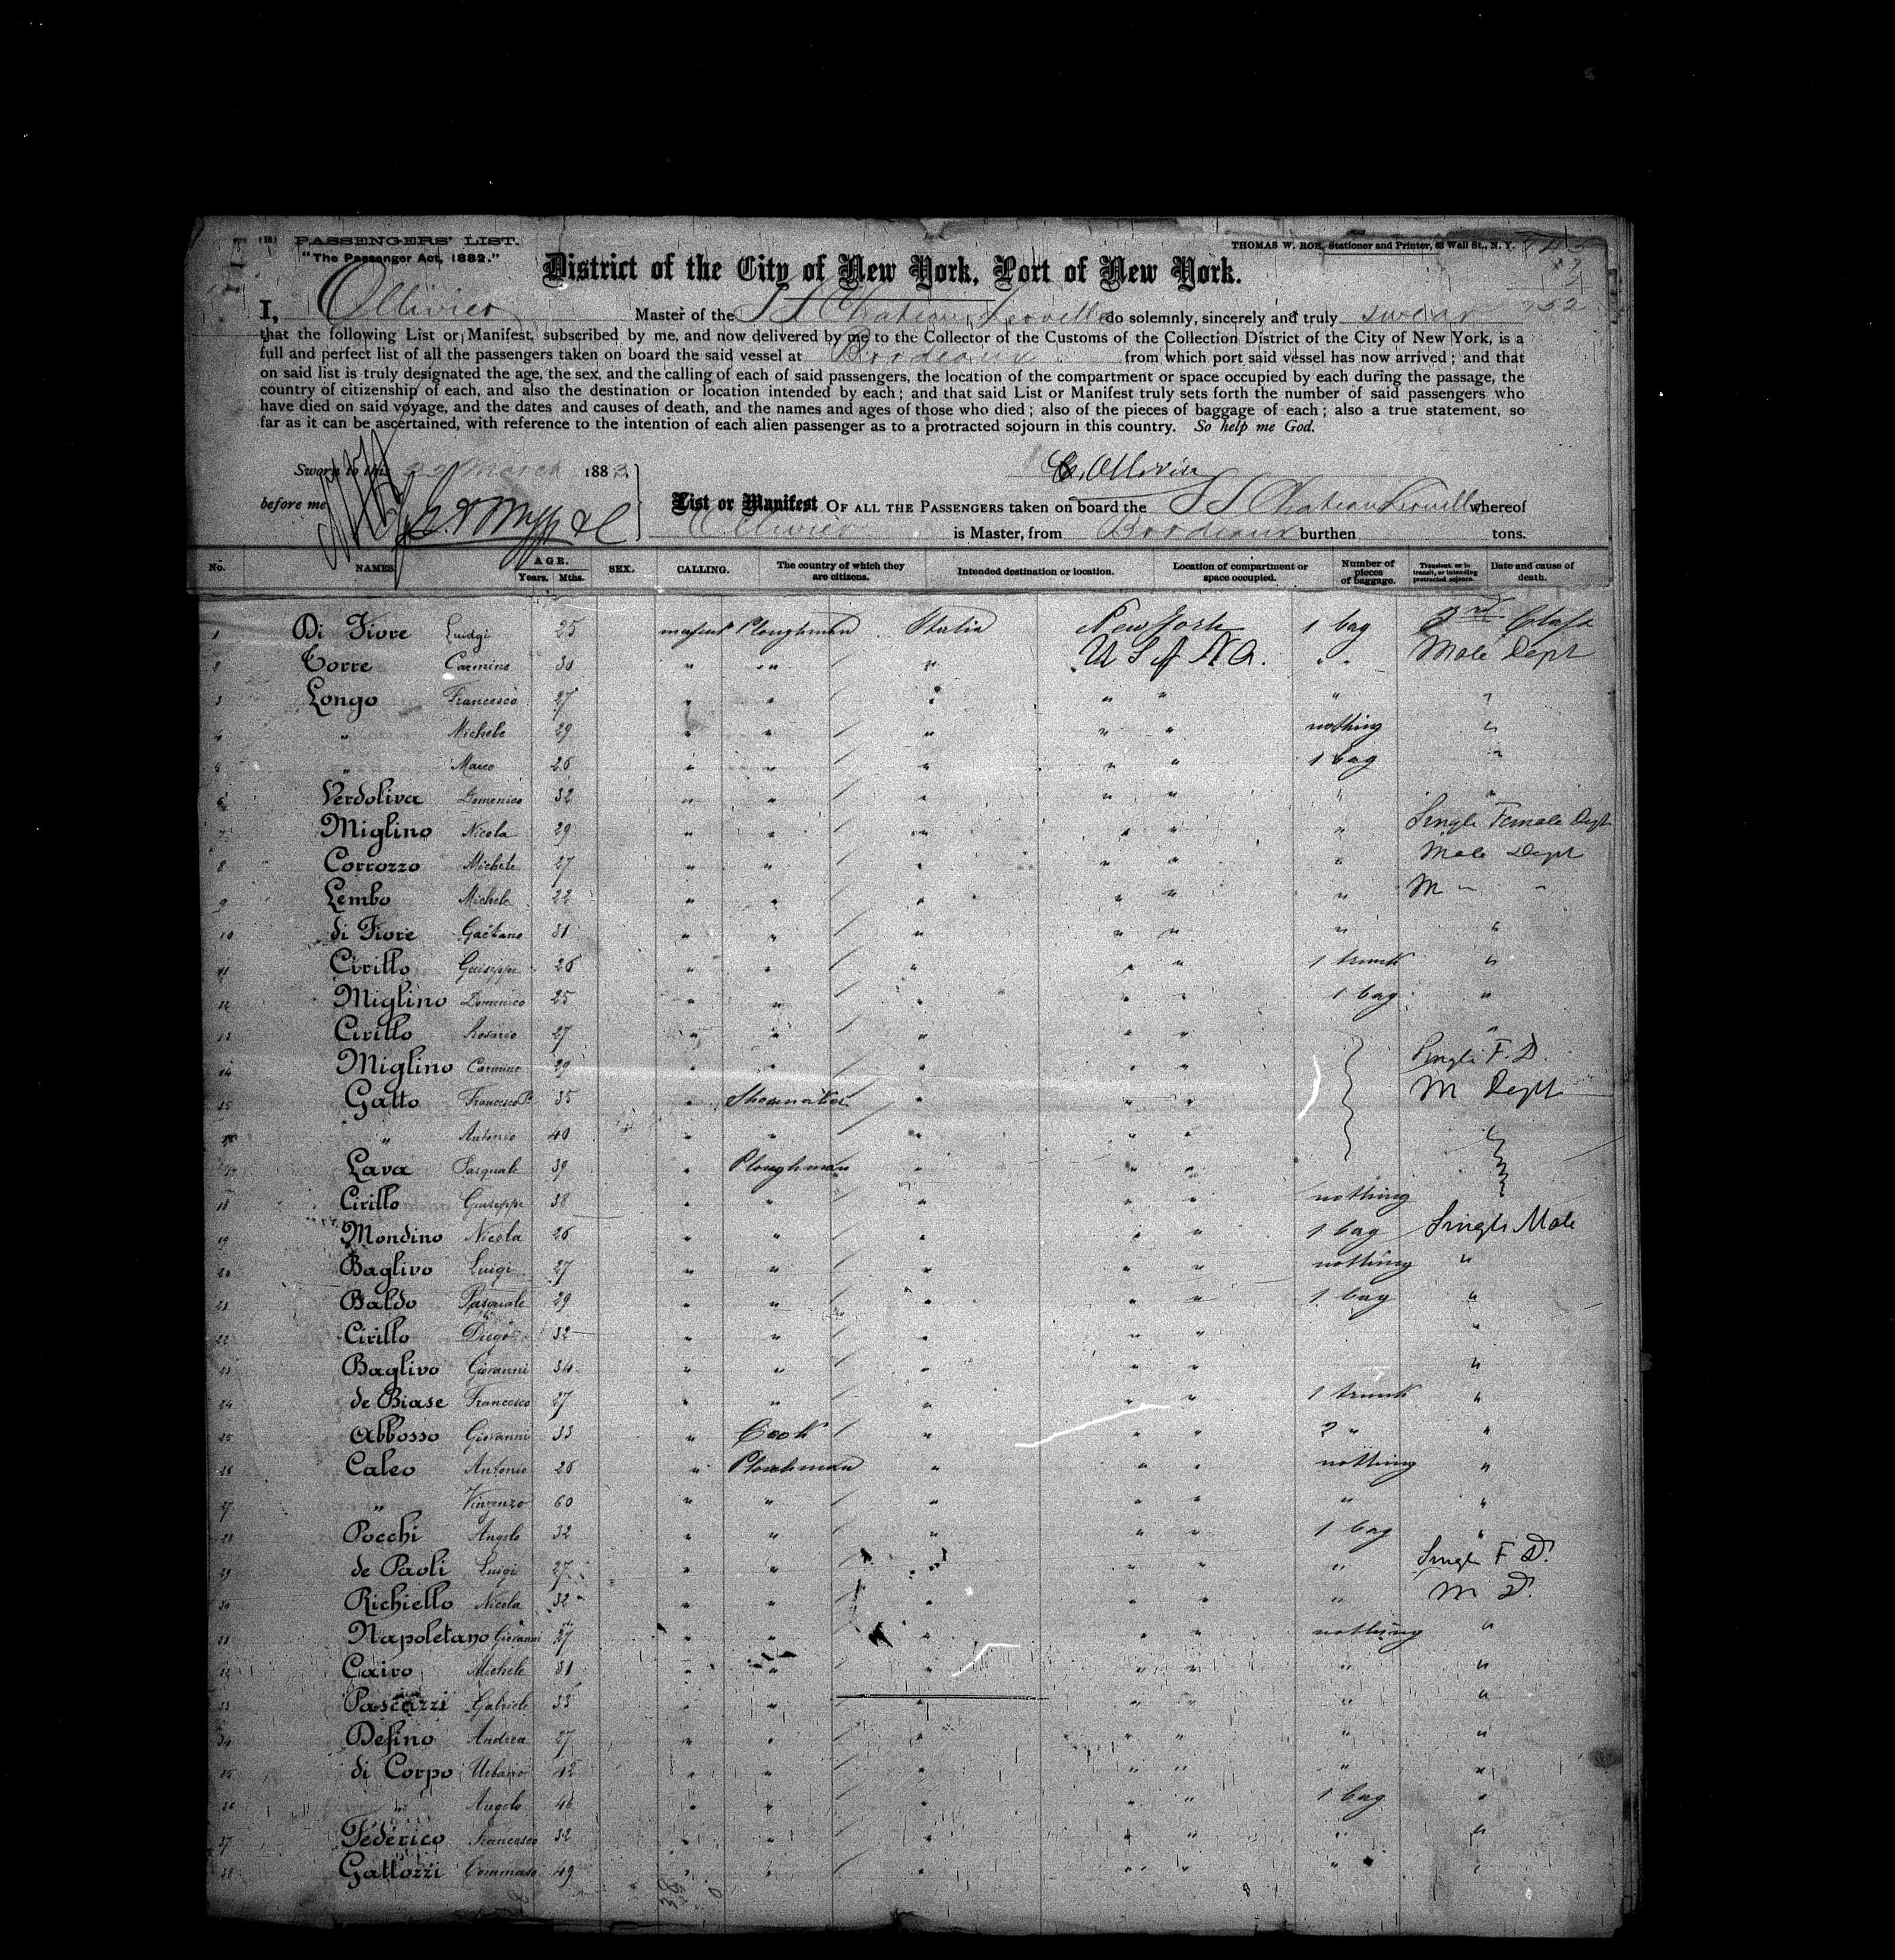 (18) PASSENGERS' LIST.
THOMAS W. ROE, Stationer and Printer, 63 Wall St., N. Y.
"The Passenger Act, 1882."
District of the City of New York, Port of New York.
I, Ollivier Master of the S S Chateau Leoville do solemnly, sincerely and truly swear
that the following List or Manifest, subscribed by me, and now delivered by me to the Collector of the Customs of the Collection District of the City of New York, is a
full and perfect list of all the passengers taken on board the said vessel at Bordeaux from which port said vessel has now arrived; and that
on said list is truly designated the age, the sex, and the calling of each of said passengers, the location of the compartment or space occupied by each during the passage, the
country of citizenship of each, and also the destination or location intended by each; and that said List or Manifest truly sets forth the number of said passengers who
have died on said voyage, and the dates and causes of death, and the names and ages of those who died; also of the pieces of baggage of each; also a true statement, so
far as it can be ascertained, with reference to the intention of each alien passenger as to a protracted sojourn in this country. So help me God.
Sworn to this March 1883
Ollivier
before me
List or Manifest OF ALL THE PASSENGERS taken on board the S S Chateau Leoville whereof
Ollivier is Master, from Bordeaux burthen tons.
No. NAMES AGE. Years. Mths. SEX. CALLING. The country of which they are citizens. Intended destination or location. Location of compartment or space occupied. Number of pieces of baggage. Transient or in transit, or intending protracted sojourn. Date and cause of death.
1 Di Fiore Luidgi 25 Ploughman Italia New York 1 bag 3rd Class
2 Torre Carmino 30 " " " U S of N A. " " Male Dept
3 Longo Francesco 27 " " " " " " "
4 " Michele 29 " " " " " nothing "
5 " Marco 26 " " " " " 1 bag "
6 Verdoliva Domenico 32 " " " " " " "
7 Miglino Nicola 29 " " " " " " Single Female Dept
8 Corrozzo Michele 27 " " " " " " Male Dept
9 Lembo Michele 22 " " " " " " M " "
10 di Fiore Gaetano 31 " " " " " " "
11 Cirillo Guiseppe 26 " " " " " 1 trunk "
12 Miglino Domenico 25 " " " " " 1 bag "
13 Cirillo Rosario 27 " " " " " "
14 Miglino Carmine 29 " " " " " Single F. D.
15 Gatto Francesco P. 35 " Shoemaker " " " M Dept
16 " Antonio 40 " " " " "
17 Lava Pasquale 39 " Ploughman " " "
18 Cirillo Guiseppe 38 " " " " " nothing
19 Mondino Nicola 26 " " " " " 1 bag Single Male
20 Baglivo Luigi 27 " " " " " nothing "
21 Baldo Pasquale 29 " " " " " 1 bag "
22 Cirillo Diego 32 " " " " " "
23 Baglivo Giovanni 34 " " " " " "
24 de Biase Francesco 27 " " " " " 1 trunk "
25 Abbosso Giovanni 33 " Cook " " " 2 " "
26 Caleo Antonio 26 " Plouhman " " " nothing "
27 " Vinzenzo 60 " " " " " " "
28 Pocchi Angelo 32 " " " " " 1 bag "
29 de Paoli Luigi 27 " " " " " " Single F D.
30 Richiello Nicola 32 " " " " " " M D.
31 Napoletano Giovanni 27 " " " " " nothing "
32 Cairo Michele 31 " " " " " " "
33 Pascazzi Gabriele 33 " " " " " " "
34 Defino Andrea 27 " " " " " " "
35 di Corpo Urbano 42 " " " " " " "
36 " Angelo 46 " " " " " 1 bag "
37 Federico Francesco 32 " " " " " " "
38 Gattozzi Tommaso 49 " " " " " " "